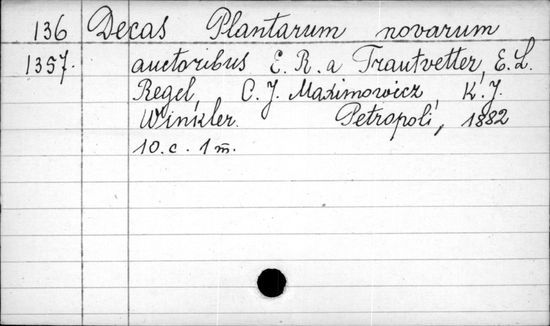 136 Decas Plantarum novarum
1357. auctoribus E. R. a Trautvetter, E. L.
Regel, C. J. Maximowicz, K. J.
Winkler. Petropoli, 1882
10. c. 1 m.